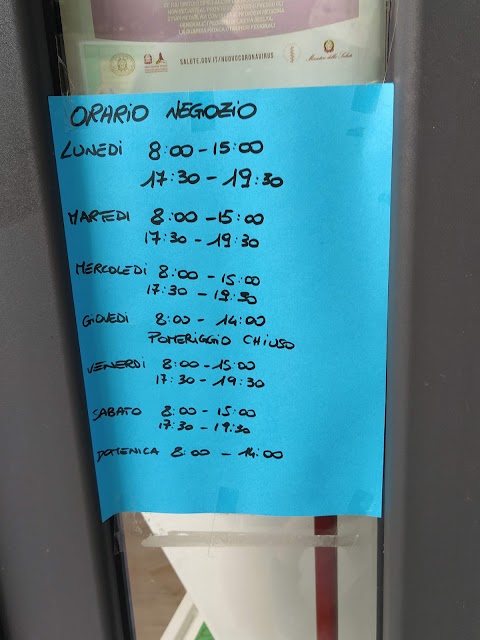 SALUTE.GOV.IT/NUOVOCORONAVIRUS
Ministero della Salute
ORARIO NEGOZIO
LUNEDI 8:00-15:00
17:30-19:30
MARTEDI 8:00-15:00
17:30-19:30
MERCOLEDI 8:00-15:00
17:30-19:30
GIOVEDI 8:00-14:00
POMERIGGIO CHIUSO
VENERDI 8:00-15:00
17:30-19:30
SABATO 8:00-15:00
17:30-19:30
DOMENICA 8:00-14:00